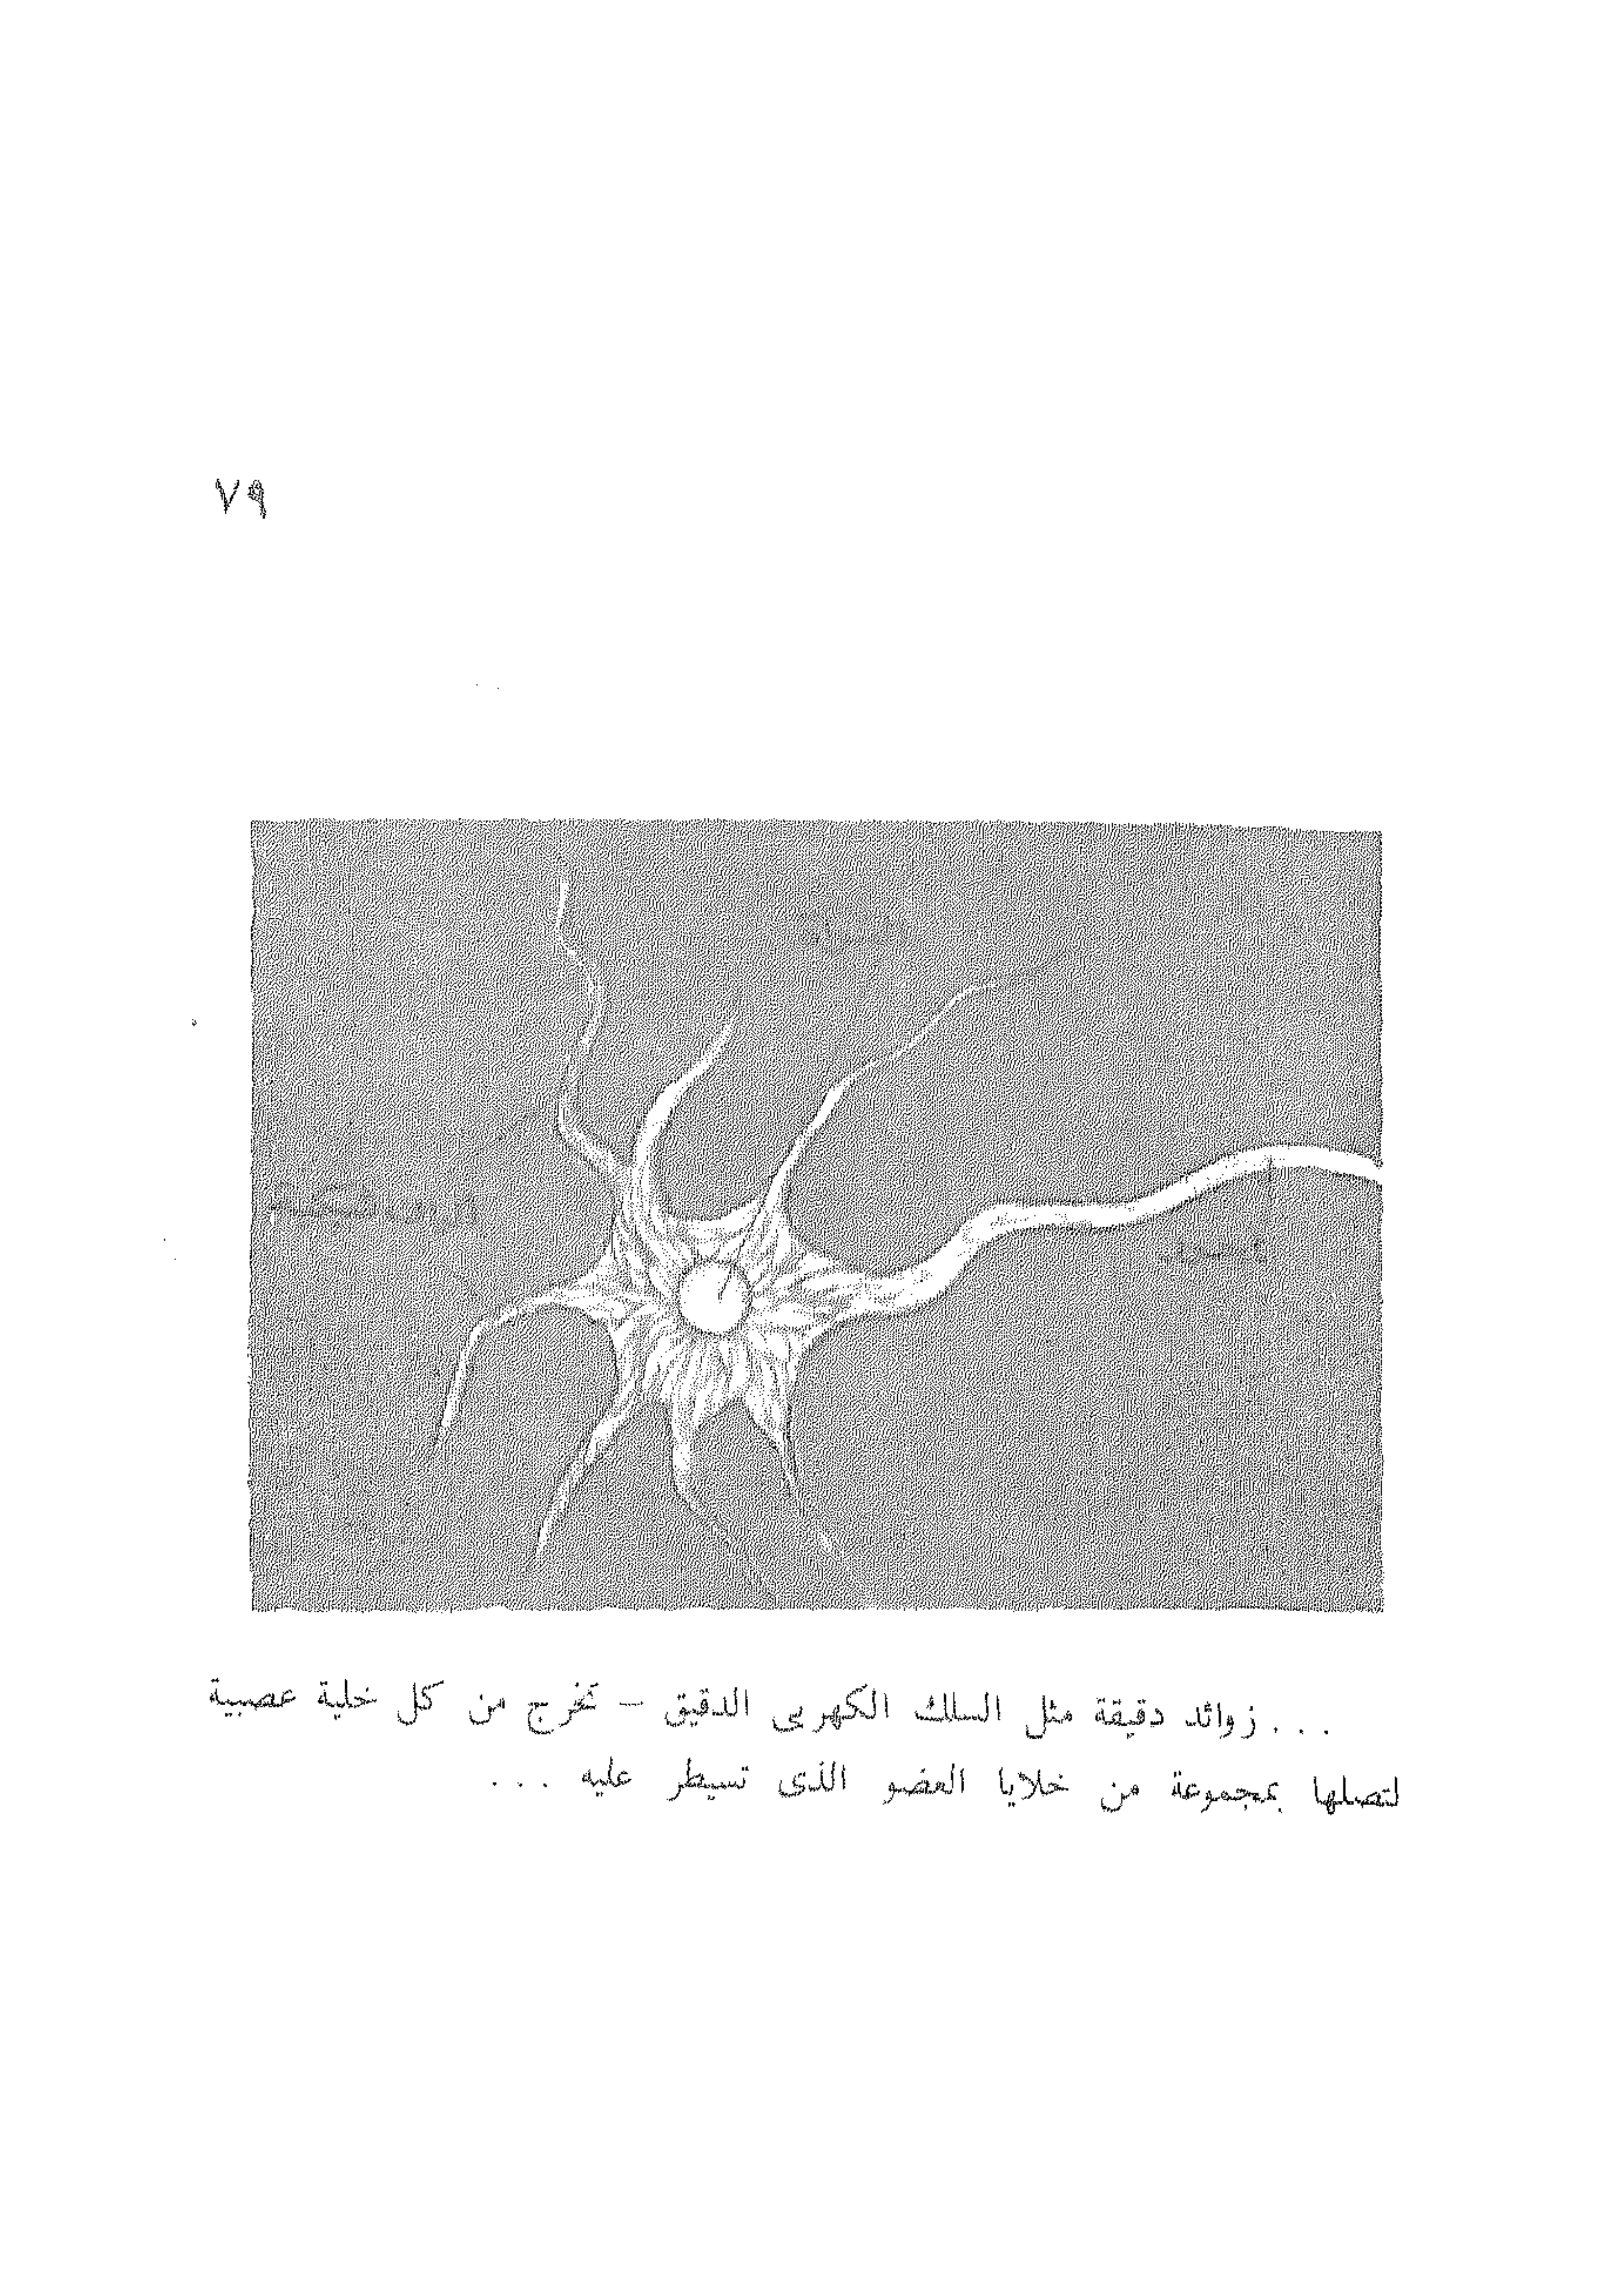 ٧٩
... زوائد دقيقة مثل السلك الكهربى الدقيق – تخرج من كل خلية عصبية
لتصلها بمجموعة من خلايا العضو الذى تسيطر عليه ...